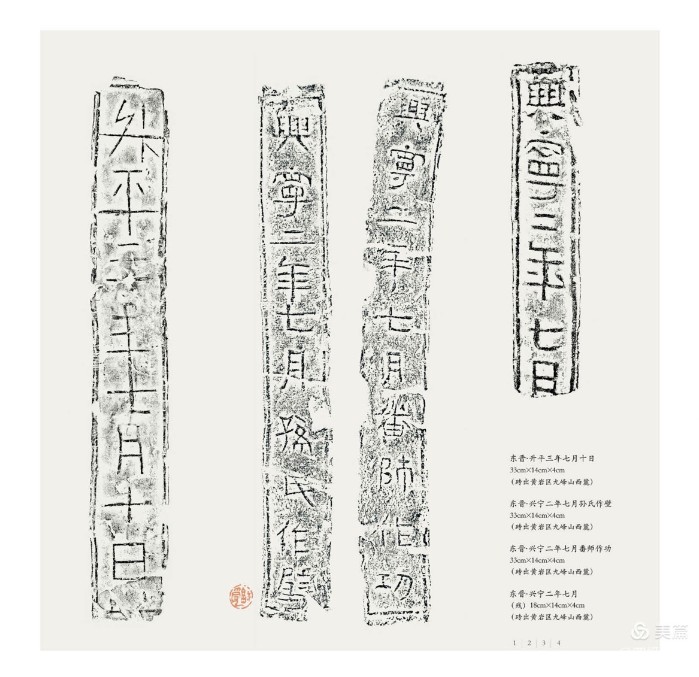 升平三年七月十日
興寧二年七月孫氏作壁
興寧二年七月番師作功
興寧二年七月
东晋·升平三年七月十日
33cm×14cm×4cm
（砖出黄岩区九峰山西麓）
东晋·兴宁二年七月孙氏作壁
33cm×14cm×4cm
（砖出黄岩区九峰山西麓）
东晋·兴宁二年七月番师作功
33cm×14cm×4cm
（砖出黄岩区九峰山西麓）
东晋·兴宁二年七月
（残）18cm×14cm×4cm
（砖出黄岩区九峰山西麓）
1 2 | 3 | 4
美篇